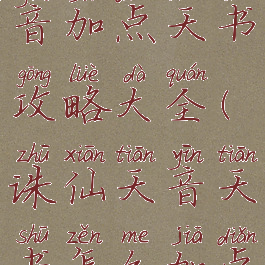 音加点天书
gōng lüè dà quán
攻略大全(
zhū xiān tiān yīn tiān
诛仙天音天
shū zěn me jiā diǎn
书怎么加点